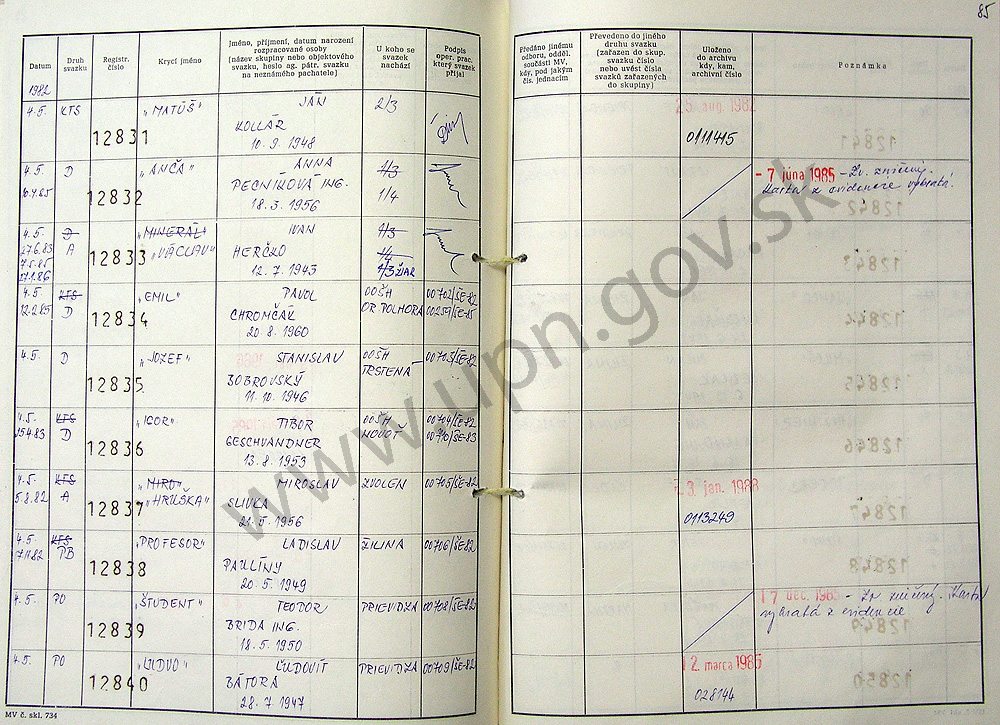 85
Datum
Druh svazku
Registr. číslo
Krycí jméno
Jméno, příjmení, datum narození
rozpracované osoby
(název skupiny nebo objektového
svazku, heslo ag. pátr. svazku
na neznámého pachatele)
U koho se
svazek
nachází
Podpis
oper. prac.
který svazek
přijal
Předáno jinému
odboru, odděl.
součásti MV,
kdy, pod jakým
čís. jednacím
Převedeno do jiného
druhu svazku
(zařazen do skup.
svazku číslo
nebo uvést číslo
svazků zařazených
do skupiny)
Uloženo
do archivu
kdy, kam,
archivní číslo
Poznámka
1982
4.5. KTS 12831 „MATÚŠ" JÁN 2/3
KOLLÁR
10. 9. 1948
25. aug. 1982
0111415
4.5. D 12832 „ANČA" ANNA 1/3
PECNÍKOVÁ ING. 1/4
18. 3. 1956
- 7 júna 1985 - Zv. zničený.
Karta z evidence vybratá.
4.5. D 12833 „MINERÁL" IVAN 1/3
27.6.83 A „VÁCLAV" HERČKO 1/4
7.5.85 12. 7. 1943 1/3 ŽIAR
27.1.86
4.5. KTS 12834 „EMIL" PAVOL OOŠH 00702/ŠE-82
12.2.85 D CHROMČÁK OR. POLHORA 00259/ŠE-85
20. 8. 1960
4.5. D 12835 „JOZEF" STANISLAV OOŠH 00703/ŠE-82
BOBROVSKÝ TRSTENÁ
11. 10. 1946
4.5. KTS 12836 „IGOR" TIBOR OOŠH 00704/ŠE-82
15.4.83 D GESCHVANDNER NOVOŤ 00710/ŠE-83
13. 8. 1953
4.5. KTS 12837 „MIRO" MIROSLAV ZVOLEN 00705/ŠE-82
5.8.82 A „HRUŠKA" SLIVKA
21. 5. 1956
3. jan. 1988
0113249
4.5. KTS 12838 „PROFESOR" LADISLAV ŽILINA 00706/ŠE-82
17.11.82 PB PAULÍNY
20. 5. 1949
4.5. PO 12839 „ŠTUDENT" TEODOR PRIEVIDZA 00708/ŠE-82
BRIDA ING.
18. 5. 1950
17 dec. 1985 - Zv. zničený. Karta
vybratá z evidence
4.5. PO 12840 „ĽUDVO" ĽUDOVÍT PRIEVIDZA 00709/ŠE-82
BÁTORA
28. 7. 1947
12. marca 1985
028144
MV č. skl. 734
www.upn.gov.sk